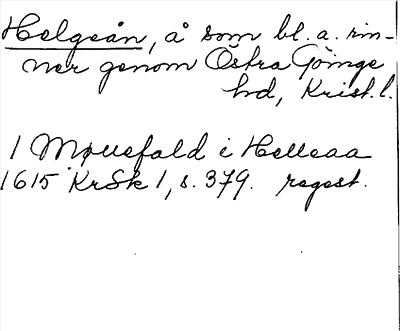 Helgeån, å som bl. a. rin-
ner genom Östra Göinge
hd, Krist. l.
1 Møllefald i Helleaa
1615 KrSk 1, s. 379. regest.